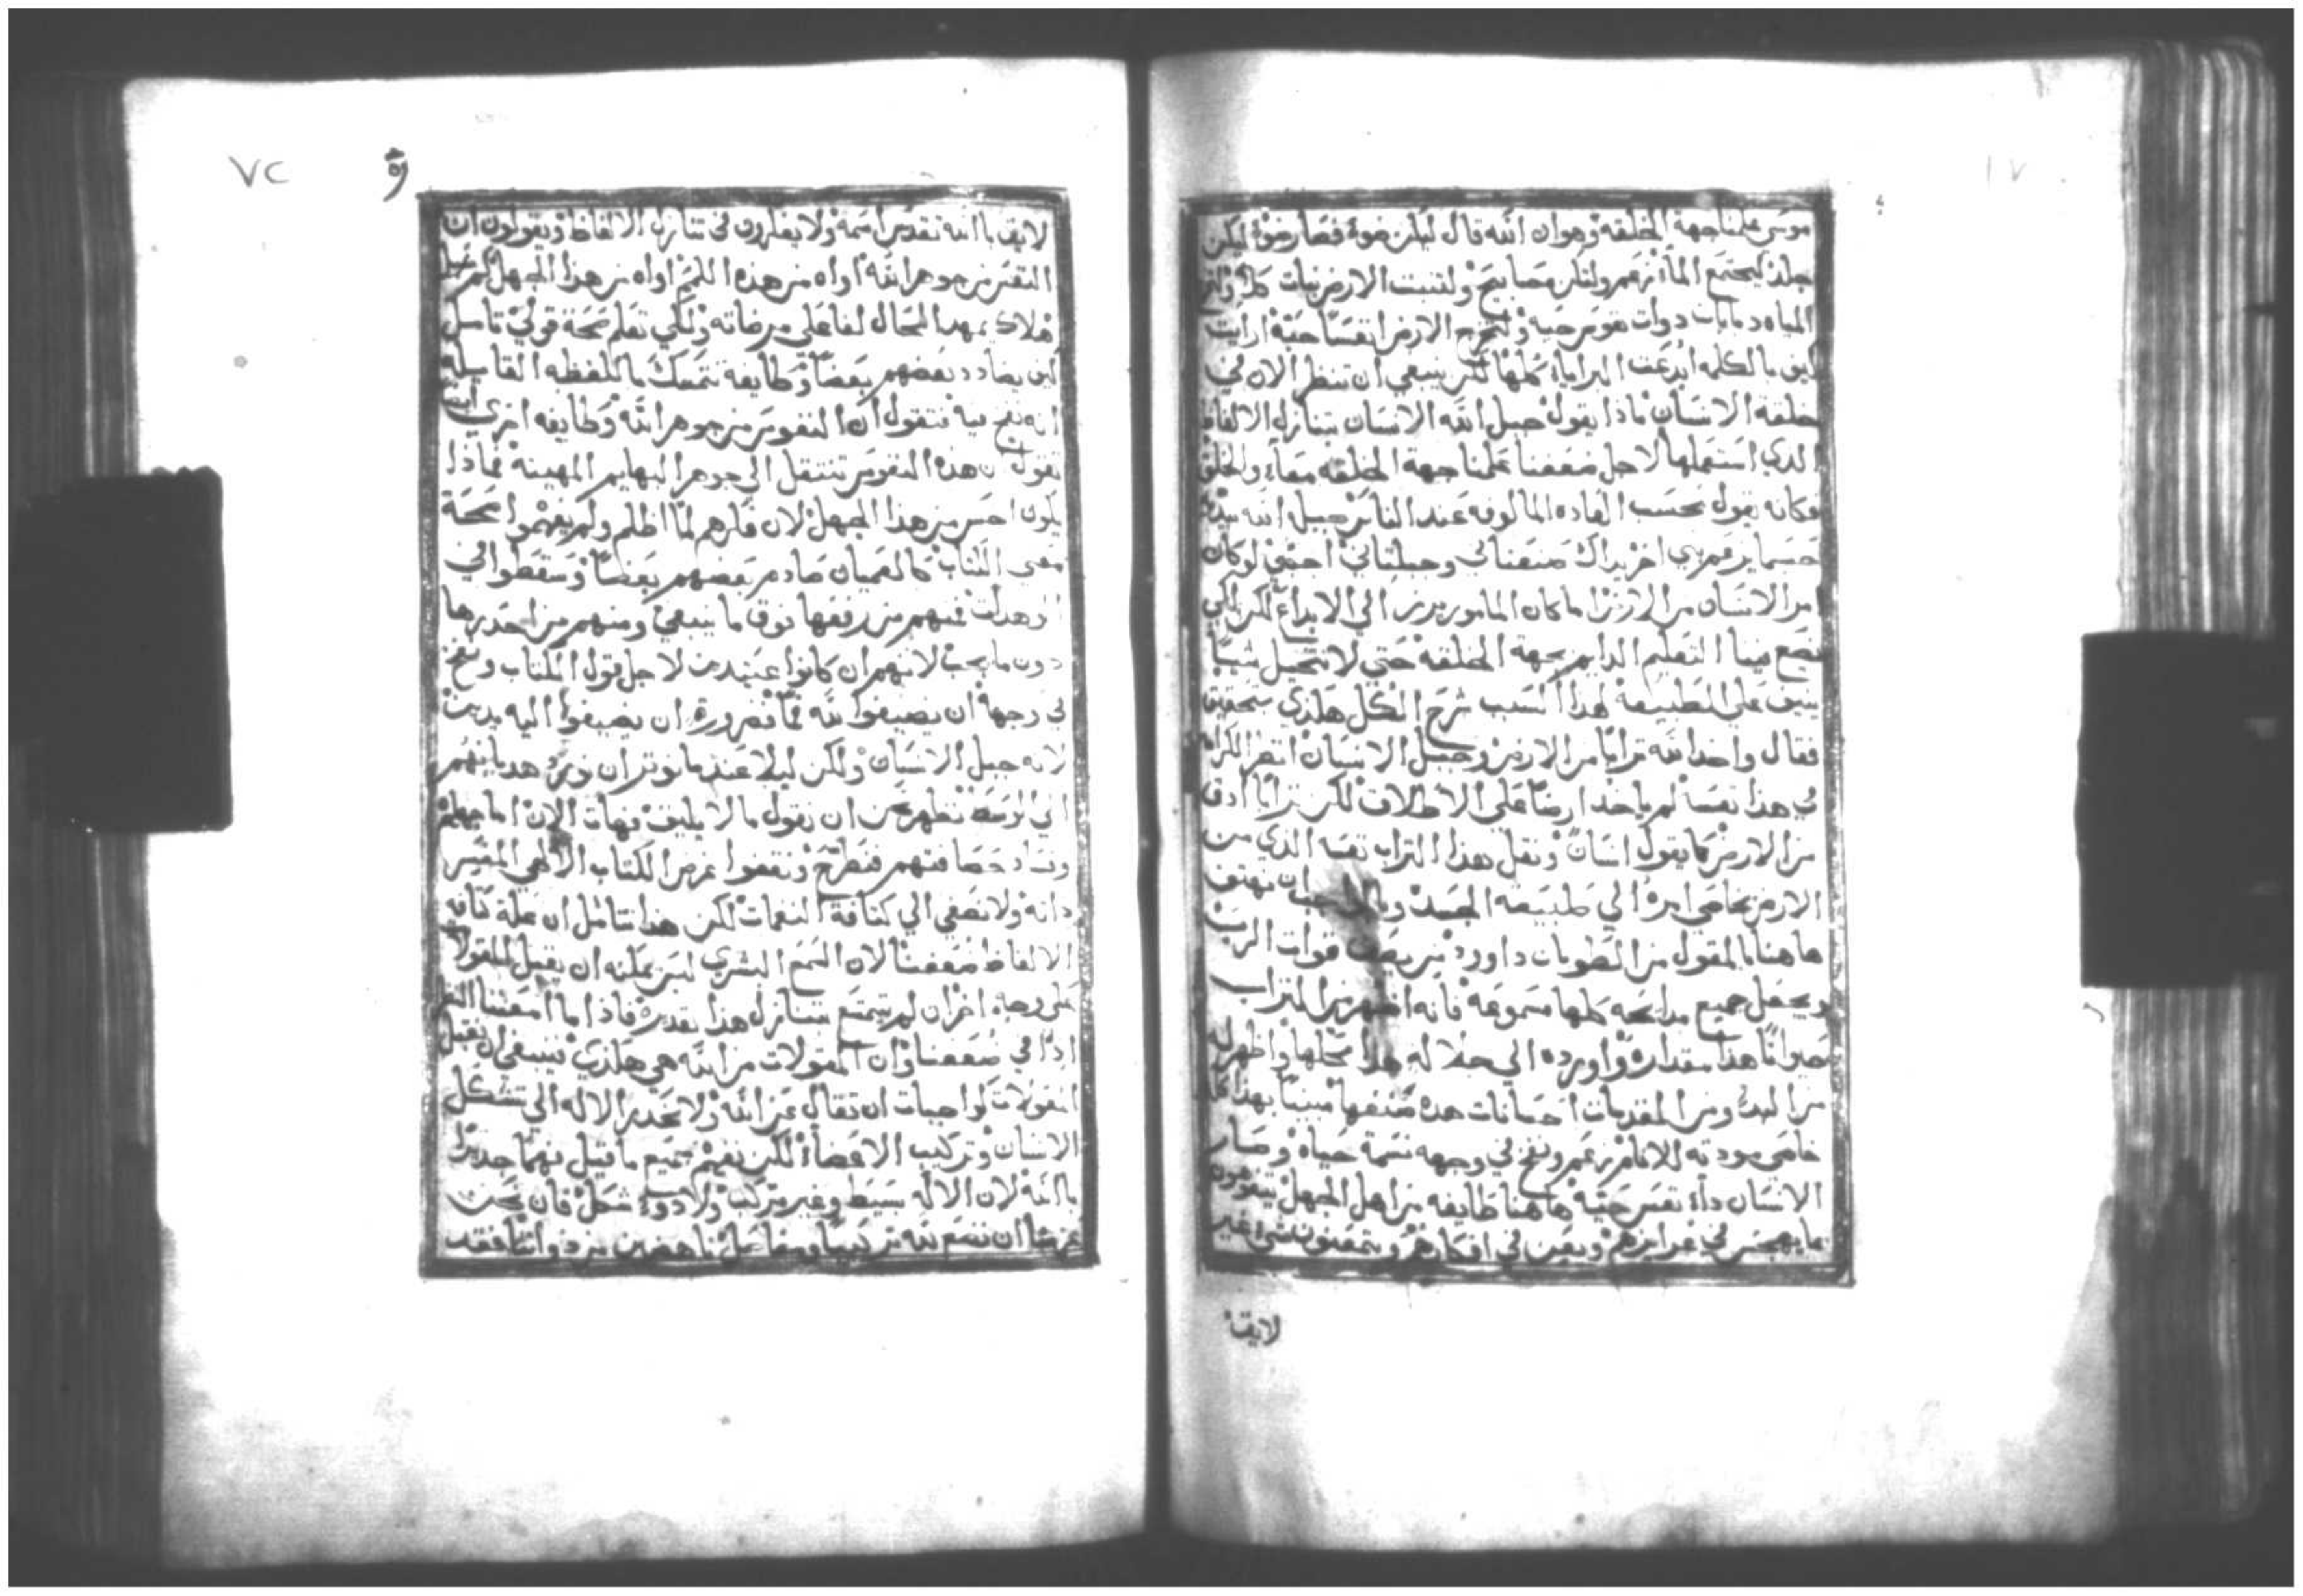 موسى علمنا جهة الخلقه وهو ان الله قال ليكن ضوءً فصار ضوءً ليكن
جلد ليجتمع الماء ولتكن مصابيح ولتنبت الارض نبات
المياه دبابات دوات نفوس حيه ولتخرج الارض انفسًا حيّة ارايت
كيف بالكلمه ابدعت البرايا كلها لكن ينبغي ان تنظر الان في
خلقة الانسان ماذا يقول جبل الله الانسان بتنازل الالفاظ
الذي استعملها لاجل ضعفنا علمنا جهة الخلقه معاً والخلق
فكانه يقول بحسب العاده المالوفه عند الناس جبل الله بيده
حسما يزعم نبي اخر يداك صنعتاني وجبلتاني اجبني لو كان
امر الانسان من الارض اما كان المامور يبرز الي الابداع لكن لكي
يضع فينا التعليم الدايم بجهة الخلقه حتي لا نتخيل شيئًا
ينيف علي الطبيعة لهذا السبب شرح الكل هكذي بتحقيق
فقال واخذ الله ترابًا من الارض وجبل الانسان انظر الكرامه
في هذا نفسًا لم ياخذ ارضًا علي الاطلاق لكن ترابًا ادق
من الارض كما يقول انسان ونقل هذا التراب نفسه الذي من
الارض بخاصي امره الي طبيعة الجسد ان نهتف
هاهنا بالمقول من الطوبان داوود من يصف قوات الرب
ويجعل جميع مدايحه كلها مسموعه فانه اظهر من التراب
حيوانًا هذا مقداره واورده الي جلاله هذا محلها واظهر له
من البدء ومن المقدمات احسانات هذه صنفها مبينًا بهذا كل
خاصي مودته للانام ونفخ في وجهه نسمة حياه وصار
الانسان دا نفس حيّه هاهنا طايفه من اهل الجهل يتفوهون
بما يهجس في غرايزهم في افكارهم شي غير
لايق
٧٢
لايق با الله تقدس اسمه ولا يفكرون في تنازل الالفاظ ويقولون ان
النفس من جوهر الله اواه من هذه اواه من هذا الجهل كم سبل
هلاك مهد المحال لفاعلي مرضاته ولكي تعلم صحة قولي تامل
كيف يضادد بعضهم بعضًا وطايفه تتمسك باللفظه القايله
انه نفخ فيه فتقول ان النفوس من جوهر الله وطايفه اخري
تقول ان هذه النفوس تنتقل الي جوهر البهايم المهينه فماذا
يكون اخس من هذا الجهل لان فكرهم لما اظلم ولم يفهموا صحة
معني الكتاب كالعميان صادم بعضهم بعضًا وسقطوا الي
الوهدات فمنهم من رفعها فوق ما ينبغي ومنهم من احدرها
دون ما يجب لانهم ان كانوا عتيدين لاجل قول الكتاب ونفخ
في وجهه ان يضيفوا لله فمًا فضرورة ان يضيفوا اليه يدين
لانه جبل الانسان ولكن ليلا عندما نوثر ان نورد هديانهم
الي الوسط نضطر نحن ان نقول ما لا يليق فهات الان اما جهلهم
وفساد حصافتهم فنطرح ونقفوا غرض الكتاب الالهي المفسر
داته ولا نصغي الي كثافة النغمات لكن هذا نتامل ان علة كثافة
الالفاظ ضعفنا لان السمع البشري ليس يمكنه ان يقبل المقولات
علي وجه اخر ان لم يتمتع بتنازل هذا تقديره فاذا ما امعنا النظر
ادًا في ضعفنا وان المقولات من الله هي هكذي فينبغي ان نقبل
المقولات كواجبات ان تقال عن الله ولا نحدر الاله الي تشكل
الانسان وتركيب الاعضاء لكن نفهم جميع ما قيل فهمًا جديرًا
با الله لان الاله بسيط وغير متركب ولا دو شكل فان نحن
عزمنا ان نضع لله تركيبًا ومفاصل